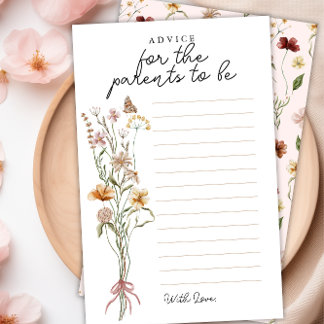 ADVICE
for the
parents to be
With Love,